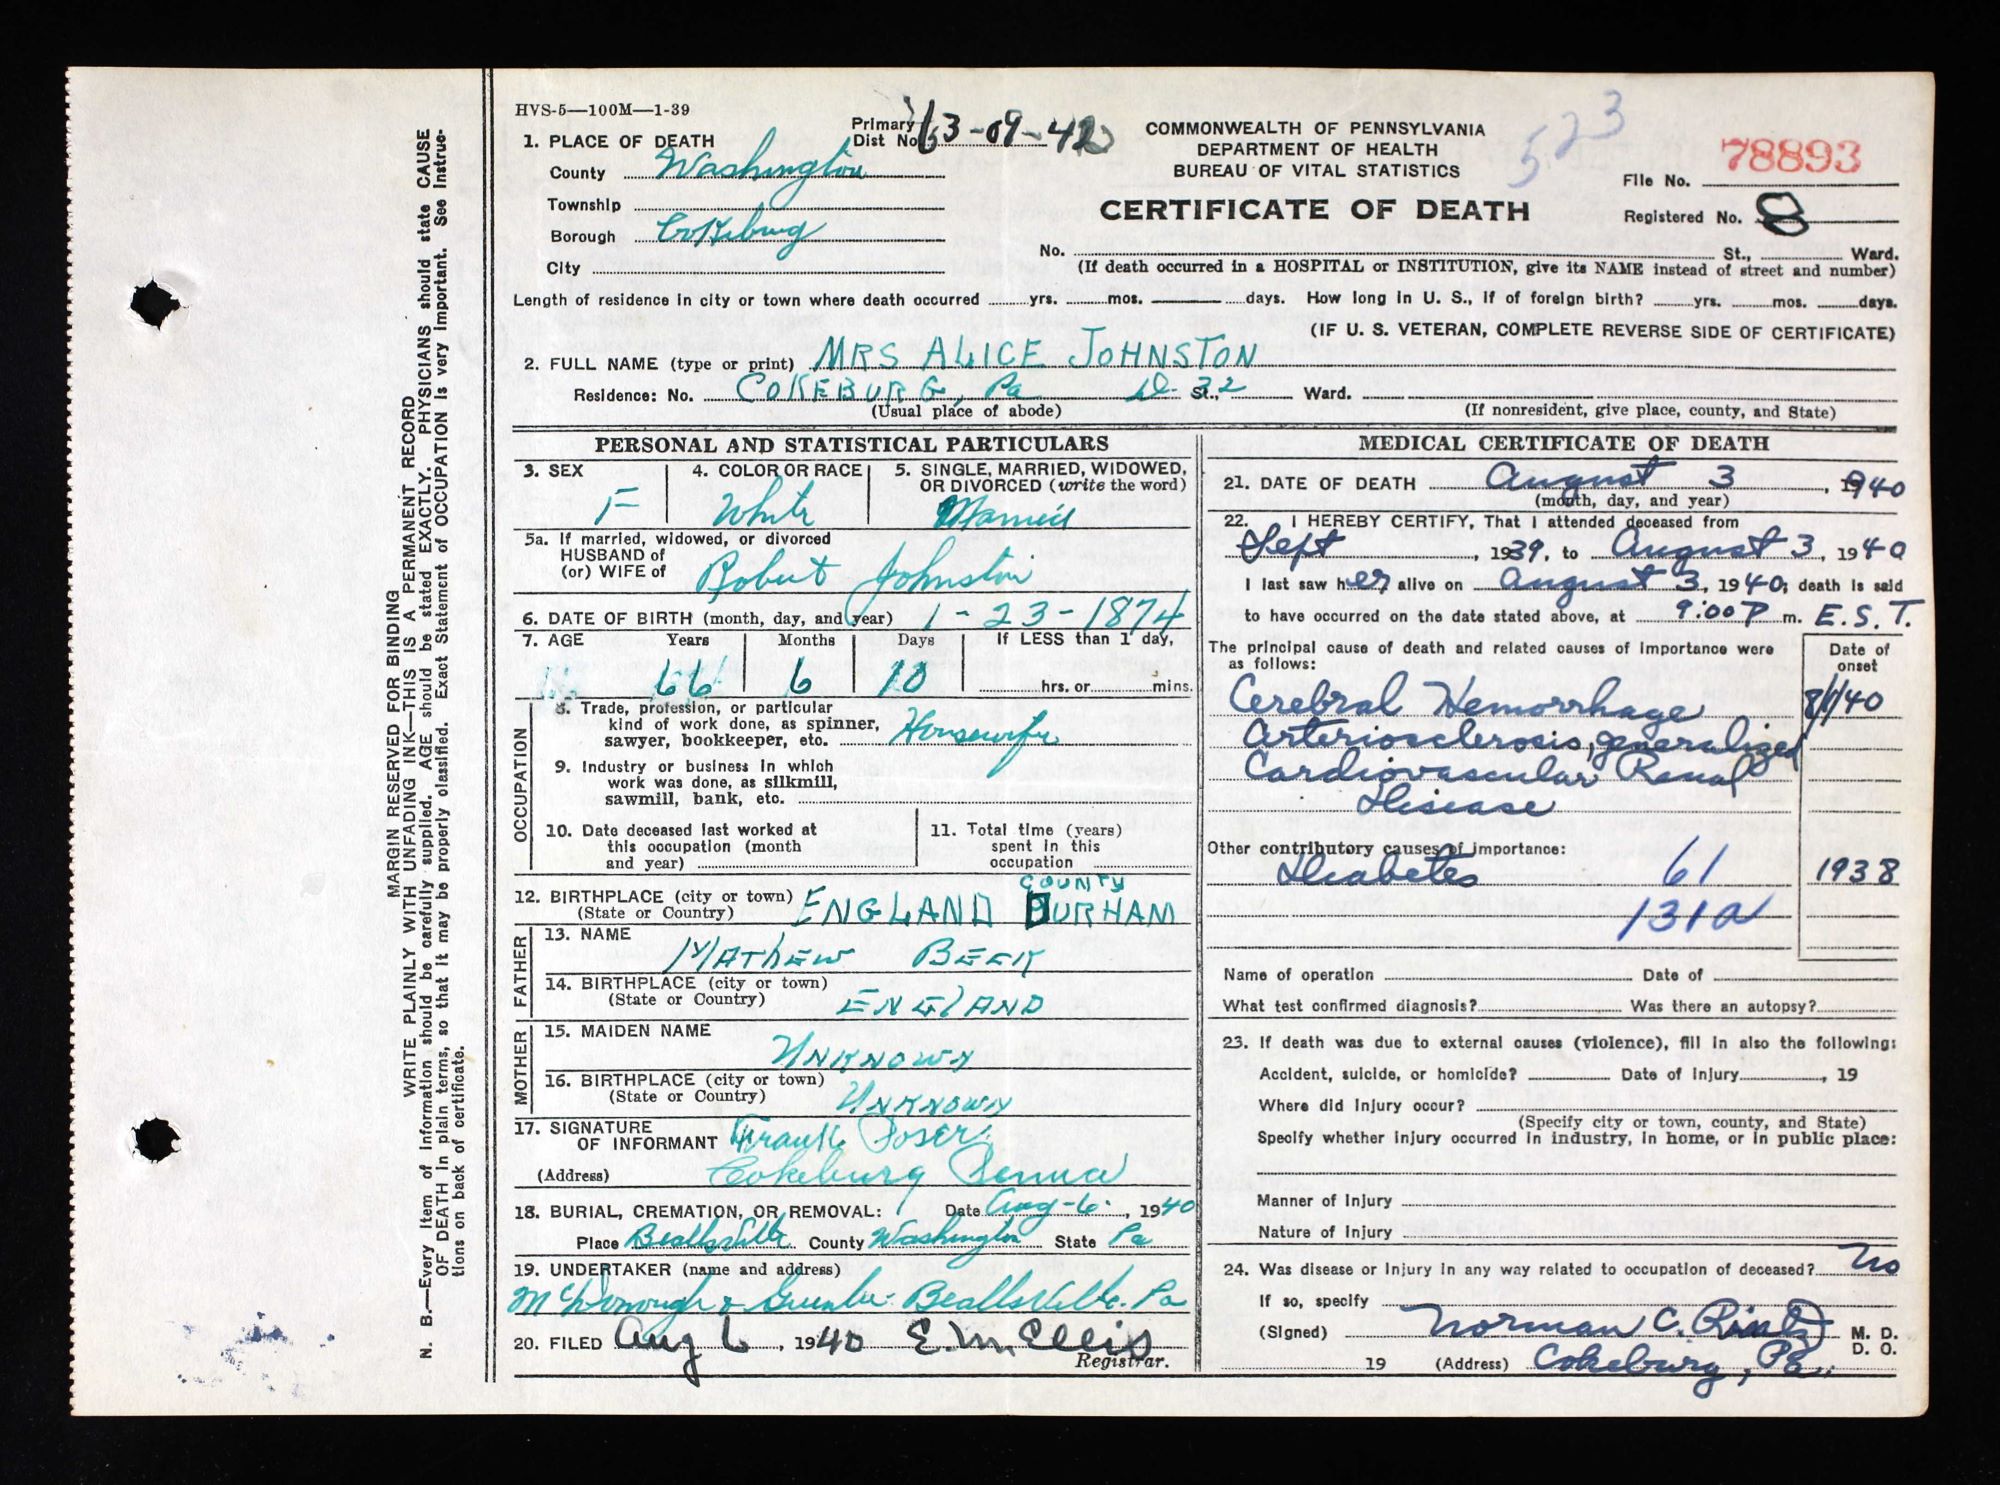 HVS-5—100M—1-39
Primary Dist No. 63-09-42
523
COMMONWEALTH OF PENNSYLVANIA
DEPARTMENT OF HEALTH
BUREAU OF VITAL STATISTICS
CERTIFICATE OF DEATH
78893
File No.
Registered No. 8
1. PLACE OF DEATH
County Washington
Township
Borough Cokeburg
City
No. St., Ward.
(If death occurred in a HOSPITAL or INSTITUTION, give its NAME instead of street and number)
Length of residence in city or town where death occurred yrs. mos. days. How long in U. S., if of foreign birth? yrs. mos. days.
(IF U. S. VETERAN, COMPLETE REVERSE SIDE OF CERTIFICATE)
2. FULL NAME (type or print) MRS ALICE JOHNSTON
Residence: No. COKEBURG, Pa D-32 St., Ward.
(Usual place of abode) (If nonresident, give place, county, and State)
PERSONAL AND STATISTICAL PARTICULARS
3. SEX F
4. COLOR OR RACE White
5. SINGLE, MARRIED, WIDOWED, OR DIVORCED (write the word) Married
5a. If married, widowed, or divorced
HUSBAND of
(or) WIFE of Robert Johnston
6. DATE OF BIRTH (month, day, and year) 1-23-1874
7. AGE Years Months Days If LESS than 1 day,
66 6 10 hrs. or mins.
OCCUPATION
8. Trade, profession, or particular
kind of work done, as spinner,
sawyer, bookkeeper, etc. Housewife
9. Industry or business in which
work was done, as silkmill,
sawmill, bank, etc.
10. Date deceased last worked at
this occupation (month
and year)
11. Total time (years)
spent in this
occupation
12. BIRTHPLACE (city or town)
(State or Country) ENGLAND COUNTY DURHAM
FATHER
13. NAME MATHEW BECK
14. BIRTHPLACE (city or town)
(State or Country) ENGLAND
MOTHER
15. MAIDEN NAME UNKNOWN
16. BIRTHPLACE (city or town)
(State or Country) UNKNOWN
17. SIGNATURE
OF INFORMANT Frank Poser
(Address) Cokeburg Penna
18. BURIAL, CREMATION, OR REMOVAL: Date Aug-6-, 1940
Place Beallsville County Washington State Pa
19. UNDERTAKER (name and address)
McDonough & Beallsville. Pa
20. FILED Aug 6, 1940 E. M. Ellis
Registrar.
MEDICAL CERTIFICATE OF DEATH
21. DATE OF DEATH August 3, 1940
(month, day, and year)
22. I HEREBY CERTIFY, That I attended deceased from
Sept, 1939, to August 3, 1940
I last saw her alive on August 3, 1940; death is said
to have occurred on the date stated above, at 9:00 P m. E.S.T.
The principal cause of death and related causes of importance were
as follows:
Date of onset
Cerebral Hemorrhage 8/1/40
Arteriosclerosis, generalized
Cardiovascular Renal
Disease
Other contributory causes of importance:
Diabetes 61 1938
131a
Name of operation Date of
What test confirmed diagnosis? Was there an autopsy?
23. If death was due to external causes (violence), fill in also the following:
Accident, suicide, or homicide? Date of injury, 19
Where did injury occur?
(Specify city or town, county, and State)
Specify whether injury occurred in industry, in home, or in public place:
Manner of injury
Nature of injury
24. Was disease or injury in any way related to occupation of deceased? No
If so, specify
(Signed) Norman C. M. D.
D. O.
19 (Address) Cokeburg, Pa.
MARGIN RESERVED FOR BINDING
WRITE PLAINLY WITH UNFADING INK—THIS IS A PERMANENT RECORD
N. B.—Every item of information should be carefully supplied. AGE should be stated EXACTLY. PHYSICIANS should state CAUSE
OF DEATH in plain terms, so that it may be properly classified. Exact Statement of OCCUPATION is very important. See Instruc-
tions on back of certificate.